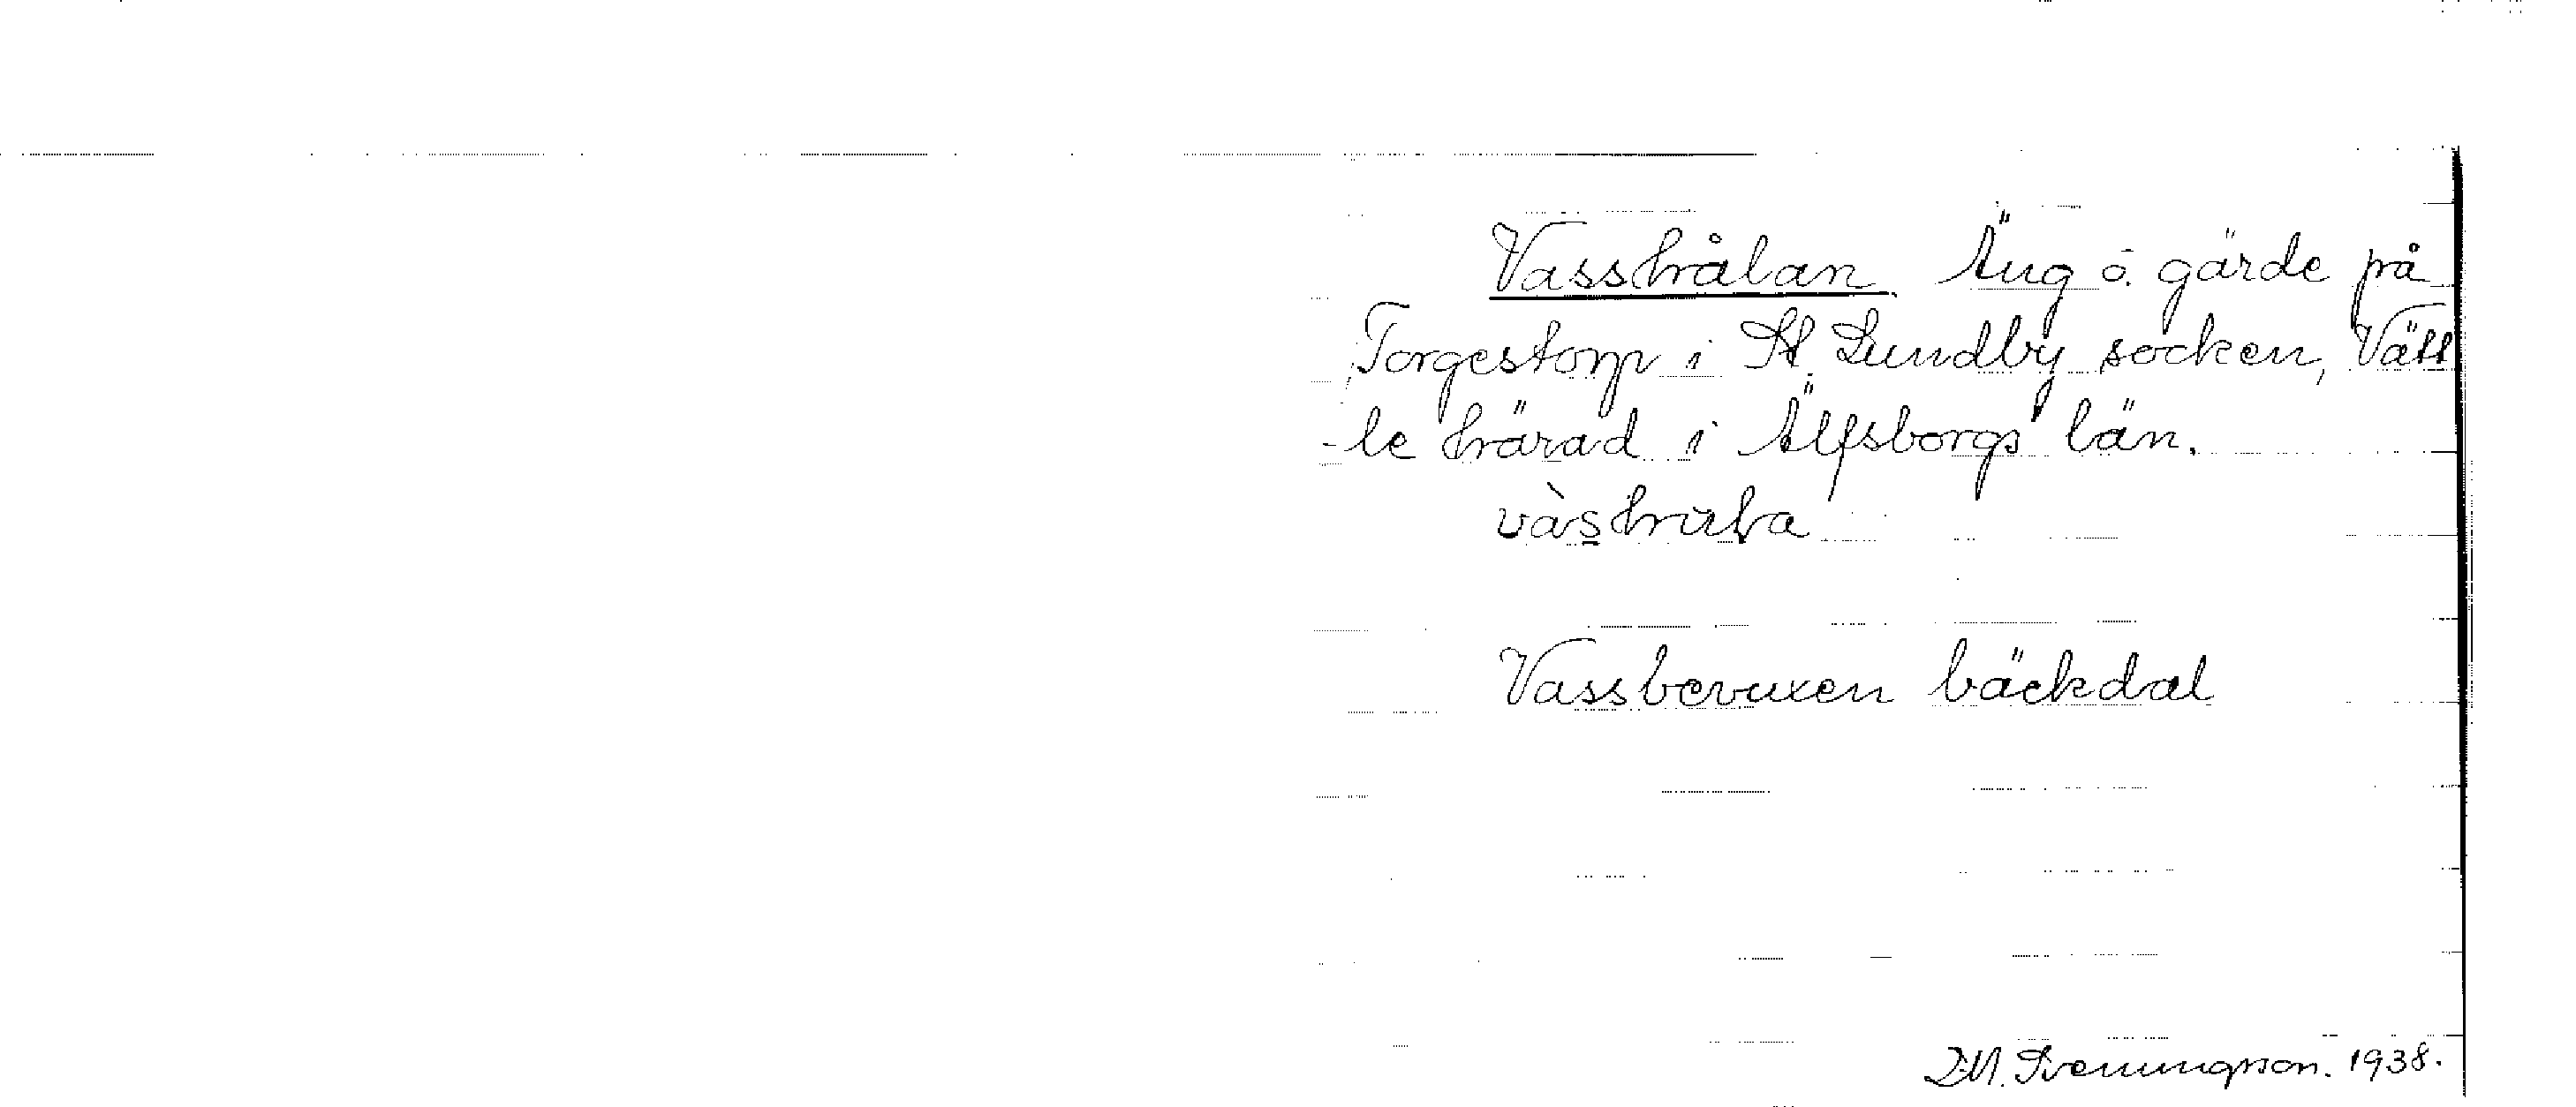 Vasshålan Äng o. gärde på
Torgestorp i St. Lundby socken, Vätt
-le härad i Älfsborgs län.
Vassbevuxen bäckdal
D.M. Svenungsson. 1938.